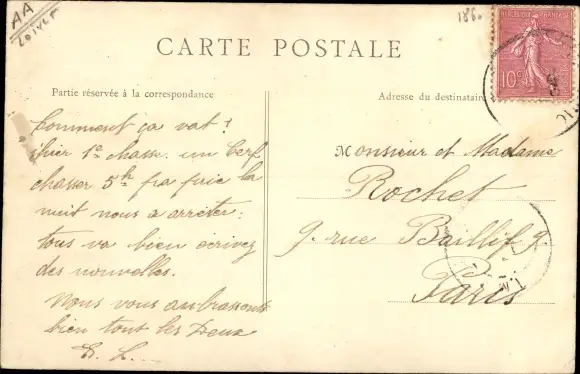 AA
1860
CARTE POSTALE
REPUBLIQUE FRANÇAISE
10c
Partie réservée à la correspondance
Adresse du destinataire
Comment ça vat ?
hier 1e chasse. un Cerf
chasser 5h fra fuie la
nuit nous a arrêter.
tous va bien écrivez
des nouvelles.
Nous vous ambrassons
bien tout les Deux
E. L.
Monsieur et Madame
Rochet
9. rue Baillif 9.
Paris